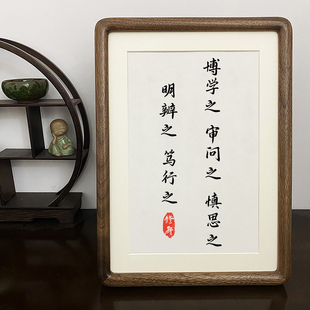 博学之 审问之 慎思之
明辩之 笃行之